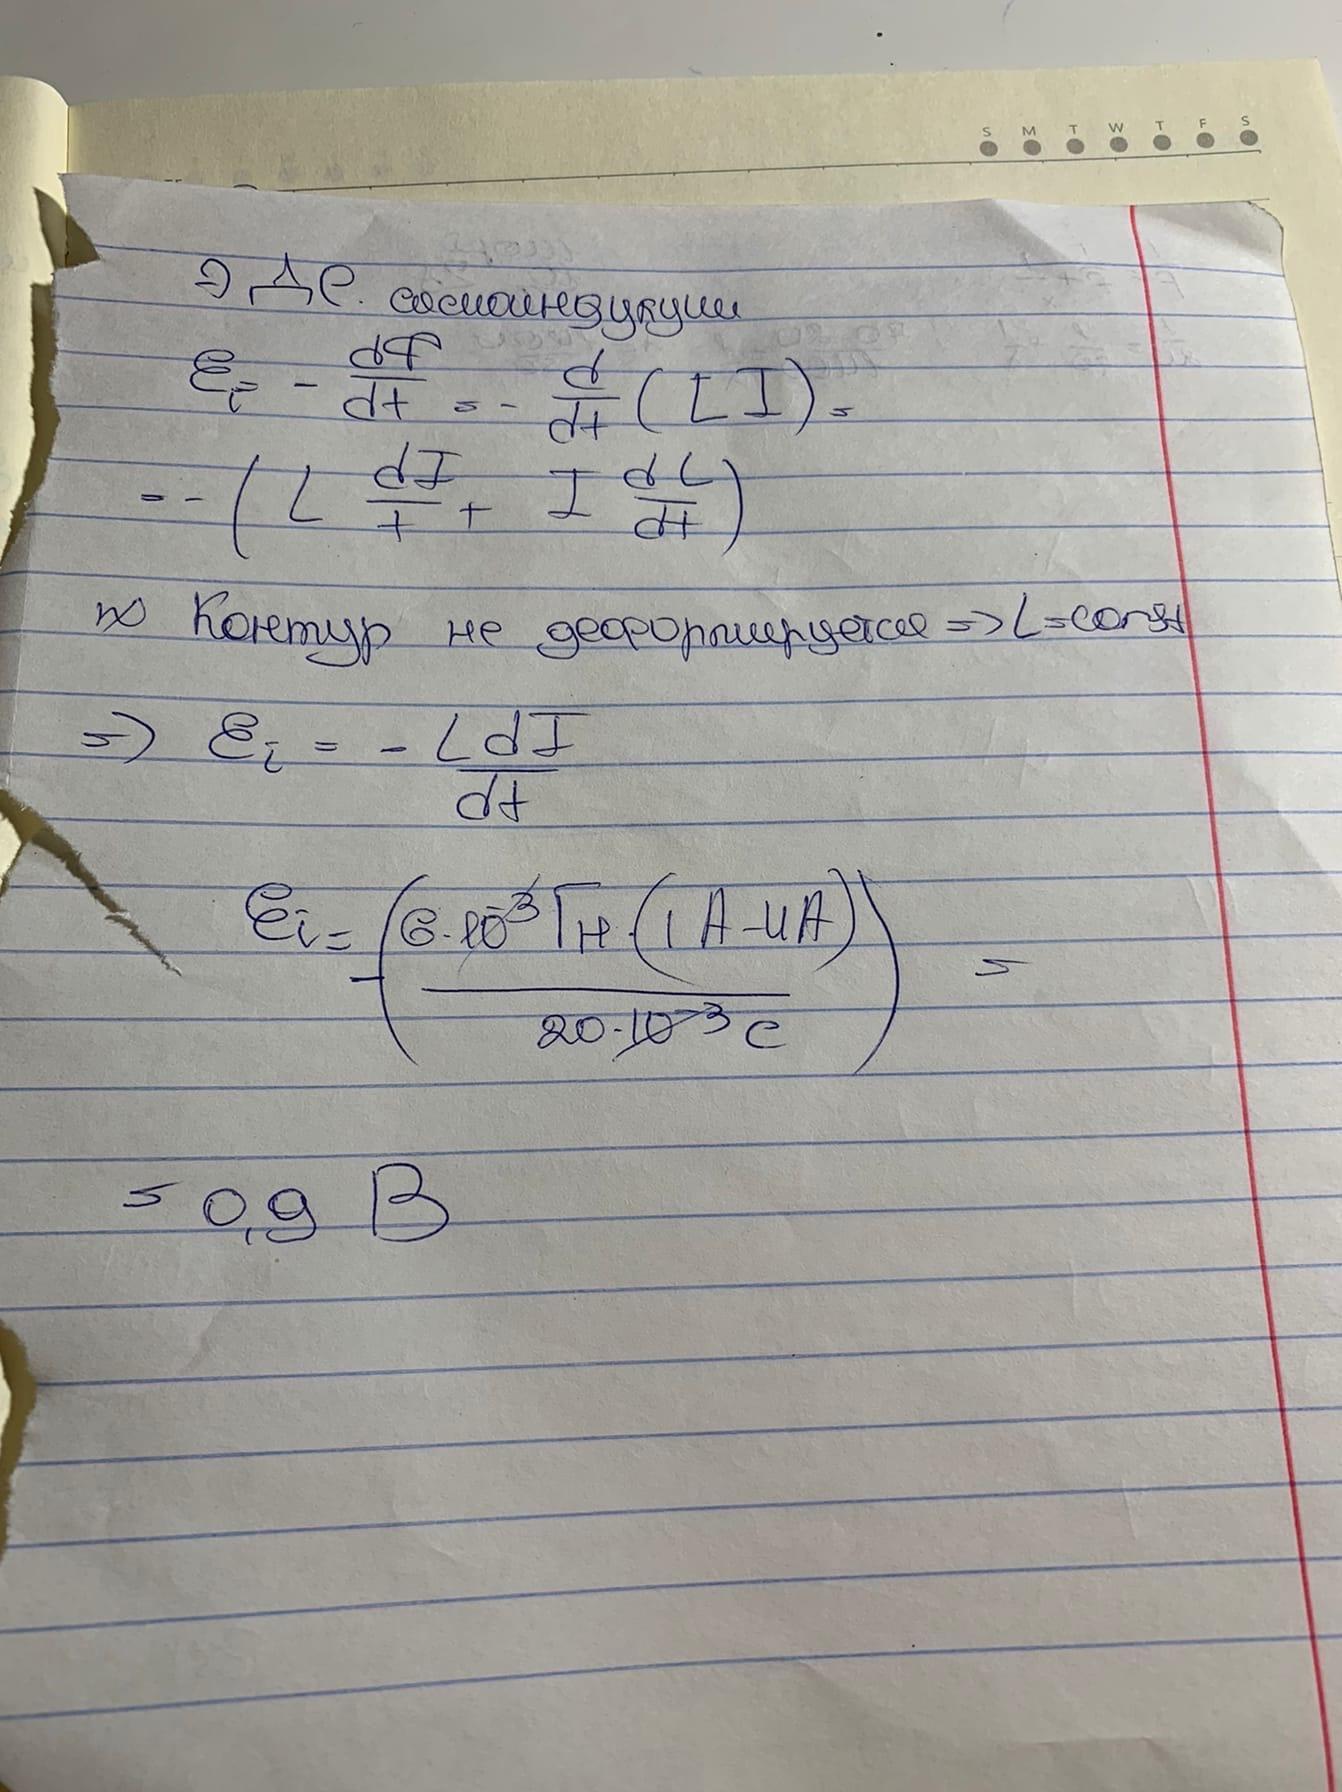 S M T W T F S
Э Д С. самоиндукции
Ɛi = - dФ/dt = - d/dt (LI) =
= - (L dI/t + I dL/dt)
Контур не деформируется => L=const
=> Ɛi = - LdI/dt
Ɛi = -(6·10⁻³ Гн·(1 А-4А)/20·10⁻³ с) =
= 0,9 В